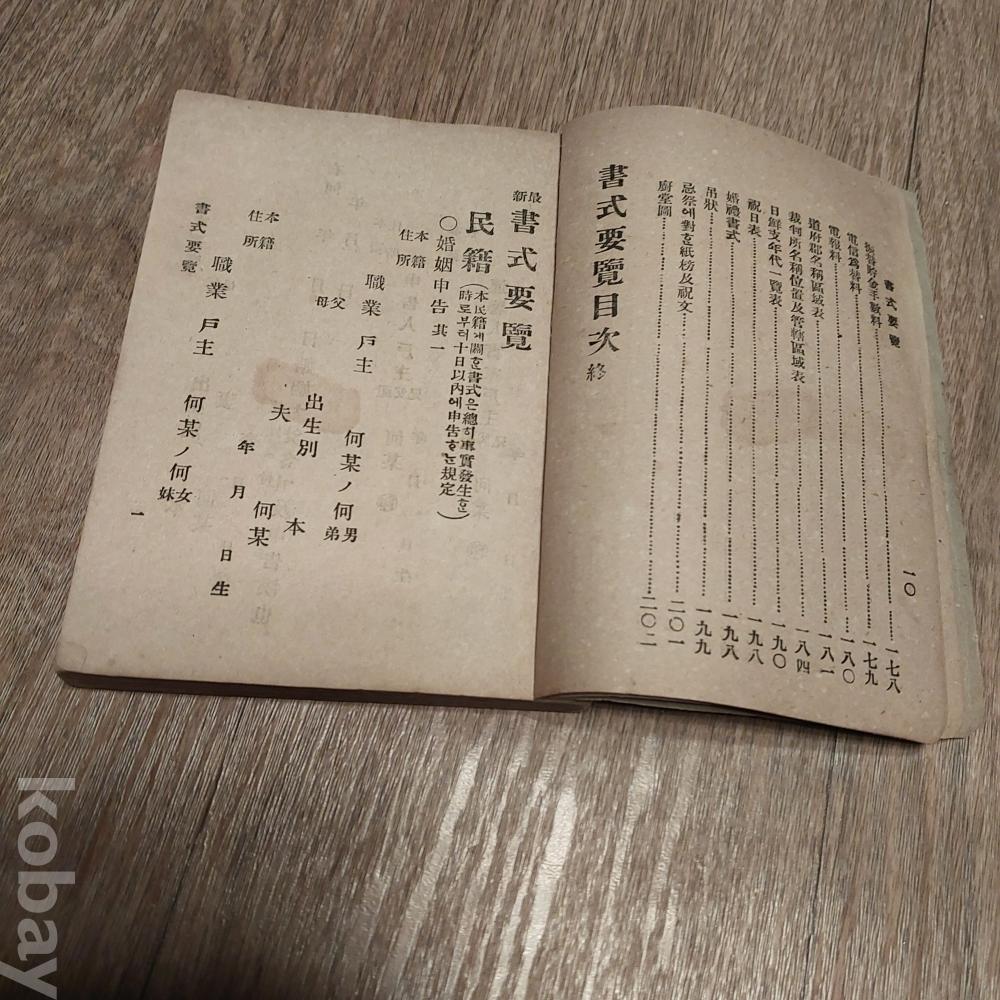 書式要覽
一〇
振替貯金手數料 一七八
電信爲替料 一七九
電報料 一八〇
道府郡名稱區域表 一八一
裁判所名稱位置及管轄區域表 一八四
日鮮支年代一覽表 一九〇
祝日表 一九八
婚禮書式 一九八
吊狀 一九九
忌祭에對호紙榜及祝文 二〇一
廚堂圖 二〇二
書式要覽目次 終
最新 書式要覽
民籍 (本民籍에關호書式은總히事實發生호
時로부터十日以內에申告호는規定)
〇婚姻申告 其一
本籍
住所
職業 戶主 何某ノ何男
弟
父
母
出生別 本
夫 何某
年 月 日生
本籍
住所
職業 戶主 何某ノ何女
妹
書式要覽
一
kobay